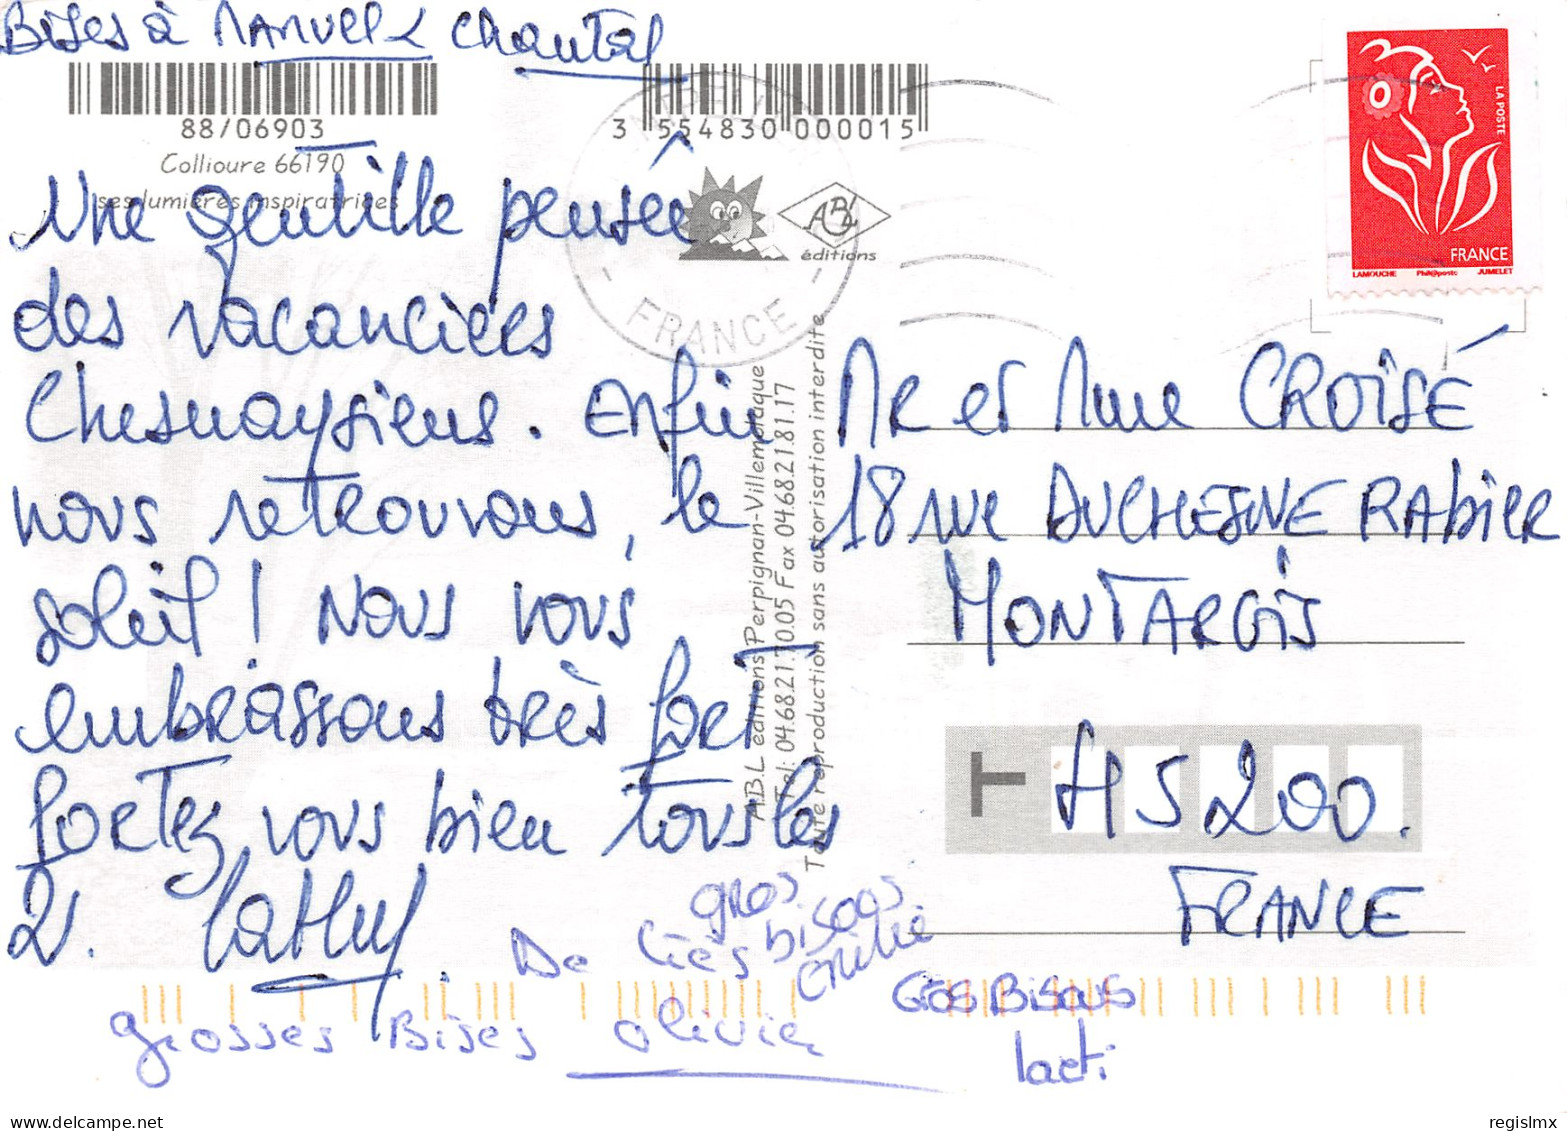 Bises à Manuel & Chantal
88/06903
3 554830 000015
Collioure 66190
ses lumières inspiratrices
ABL
éditions
FRANCE
LA POSTE
FRANCE
LAMOUCHE Phil@poste JUMELET
Une gentille pensée
des vacanciers
Chesnaysiens. Enfin
nous retrouvons, le
soleil ! Nous vous
embrassons très fort
portez vous bien tous les
2. Cathy
A.B.L éditions Perpignan-Villemolaque
Tel: 04.68.21.70.05 Fax 04.68.21.81.17
Toute reproduction sans autorisation interdite
Mr et Mme CROISÉ
18 rue DUCHESNE RABIER
MONTARGIS
T 45200.
FRANCE
De
gros
bisous
Emilie
Grosses Bises Olivier
Gros Bisous